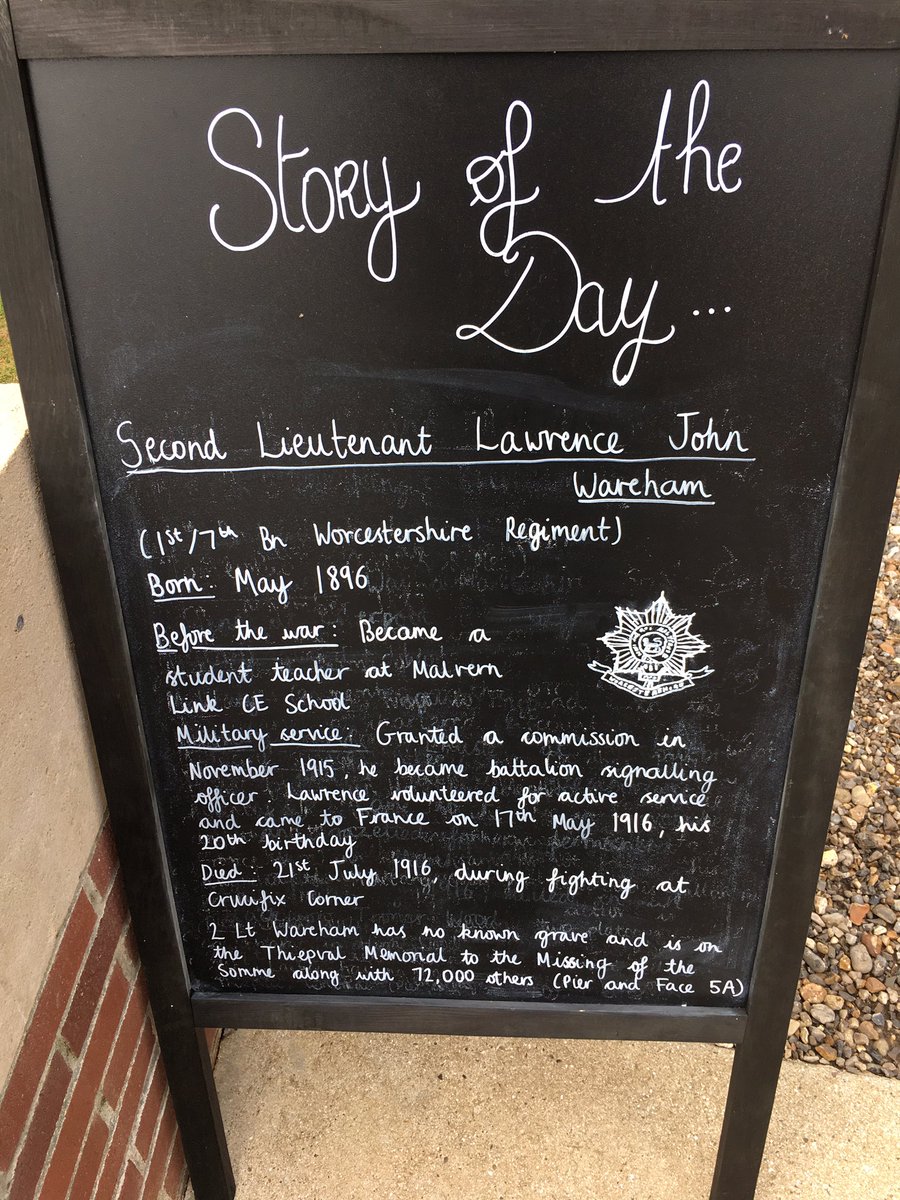 Story of the
Day...
Second Lieutenant Lawrence John
Wareham
(1st/7th Bn Worcestershire Regiment)
Born: May 1896
Before the war: Became a
student teacher at Malvern
Link CE School
Military service: Granted a commission in
November 1915, he became battalion signalling
officer. Lawrence volunteered for active service
and came to France on 17th May 1916, his
20th birthday
Died: 21st July 1916, during fighting at
Crucifix Corner
2 Lt Wareham has no known grave and is on
the Thiepval Memorial to the Missing of the
Somme along with 72,000 others (Pier and Face 5A)